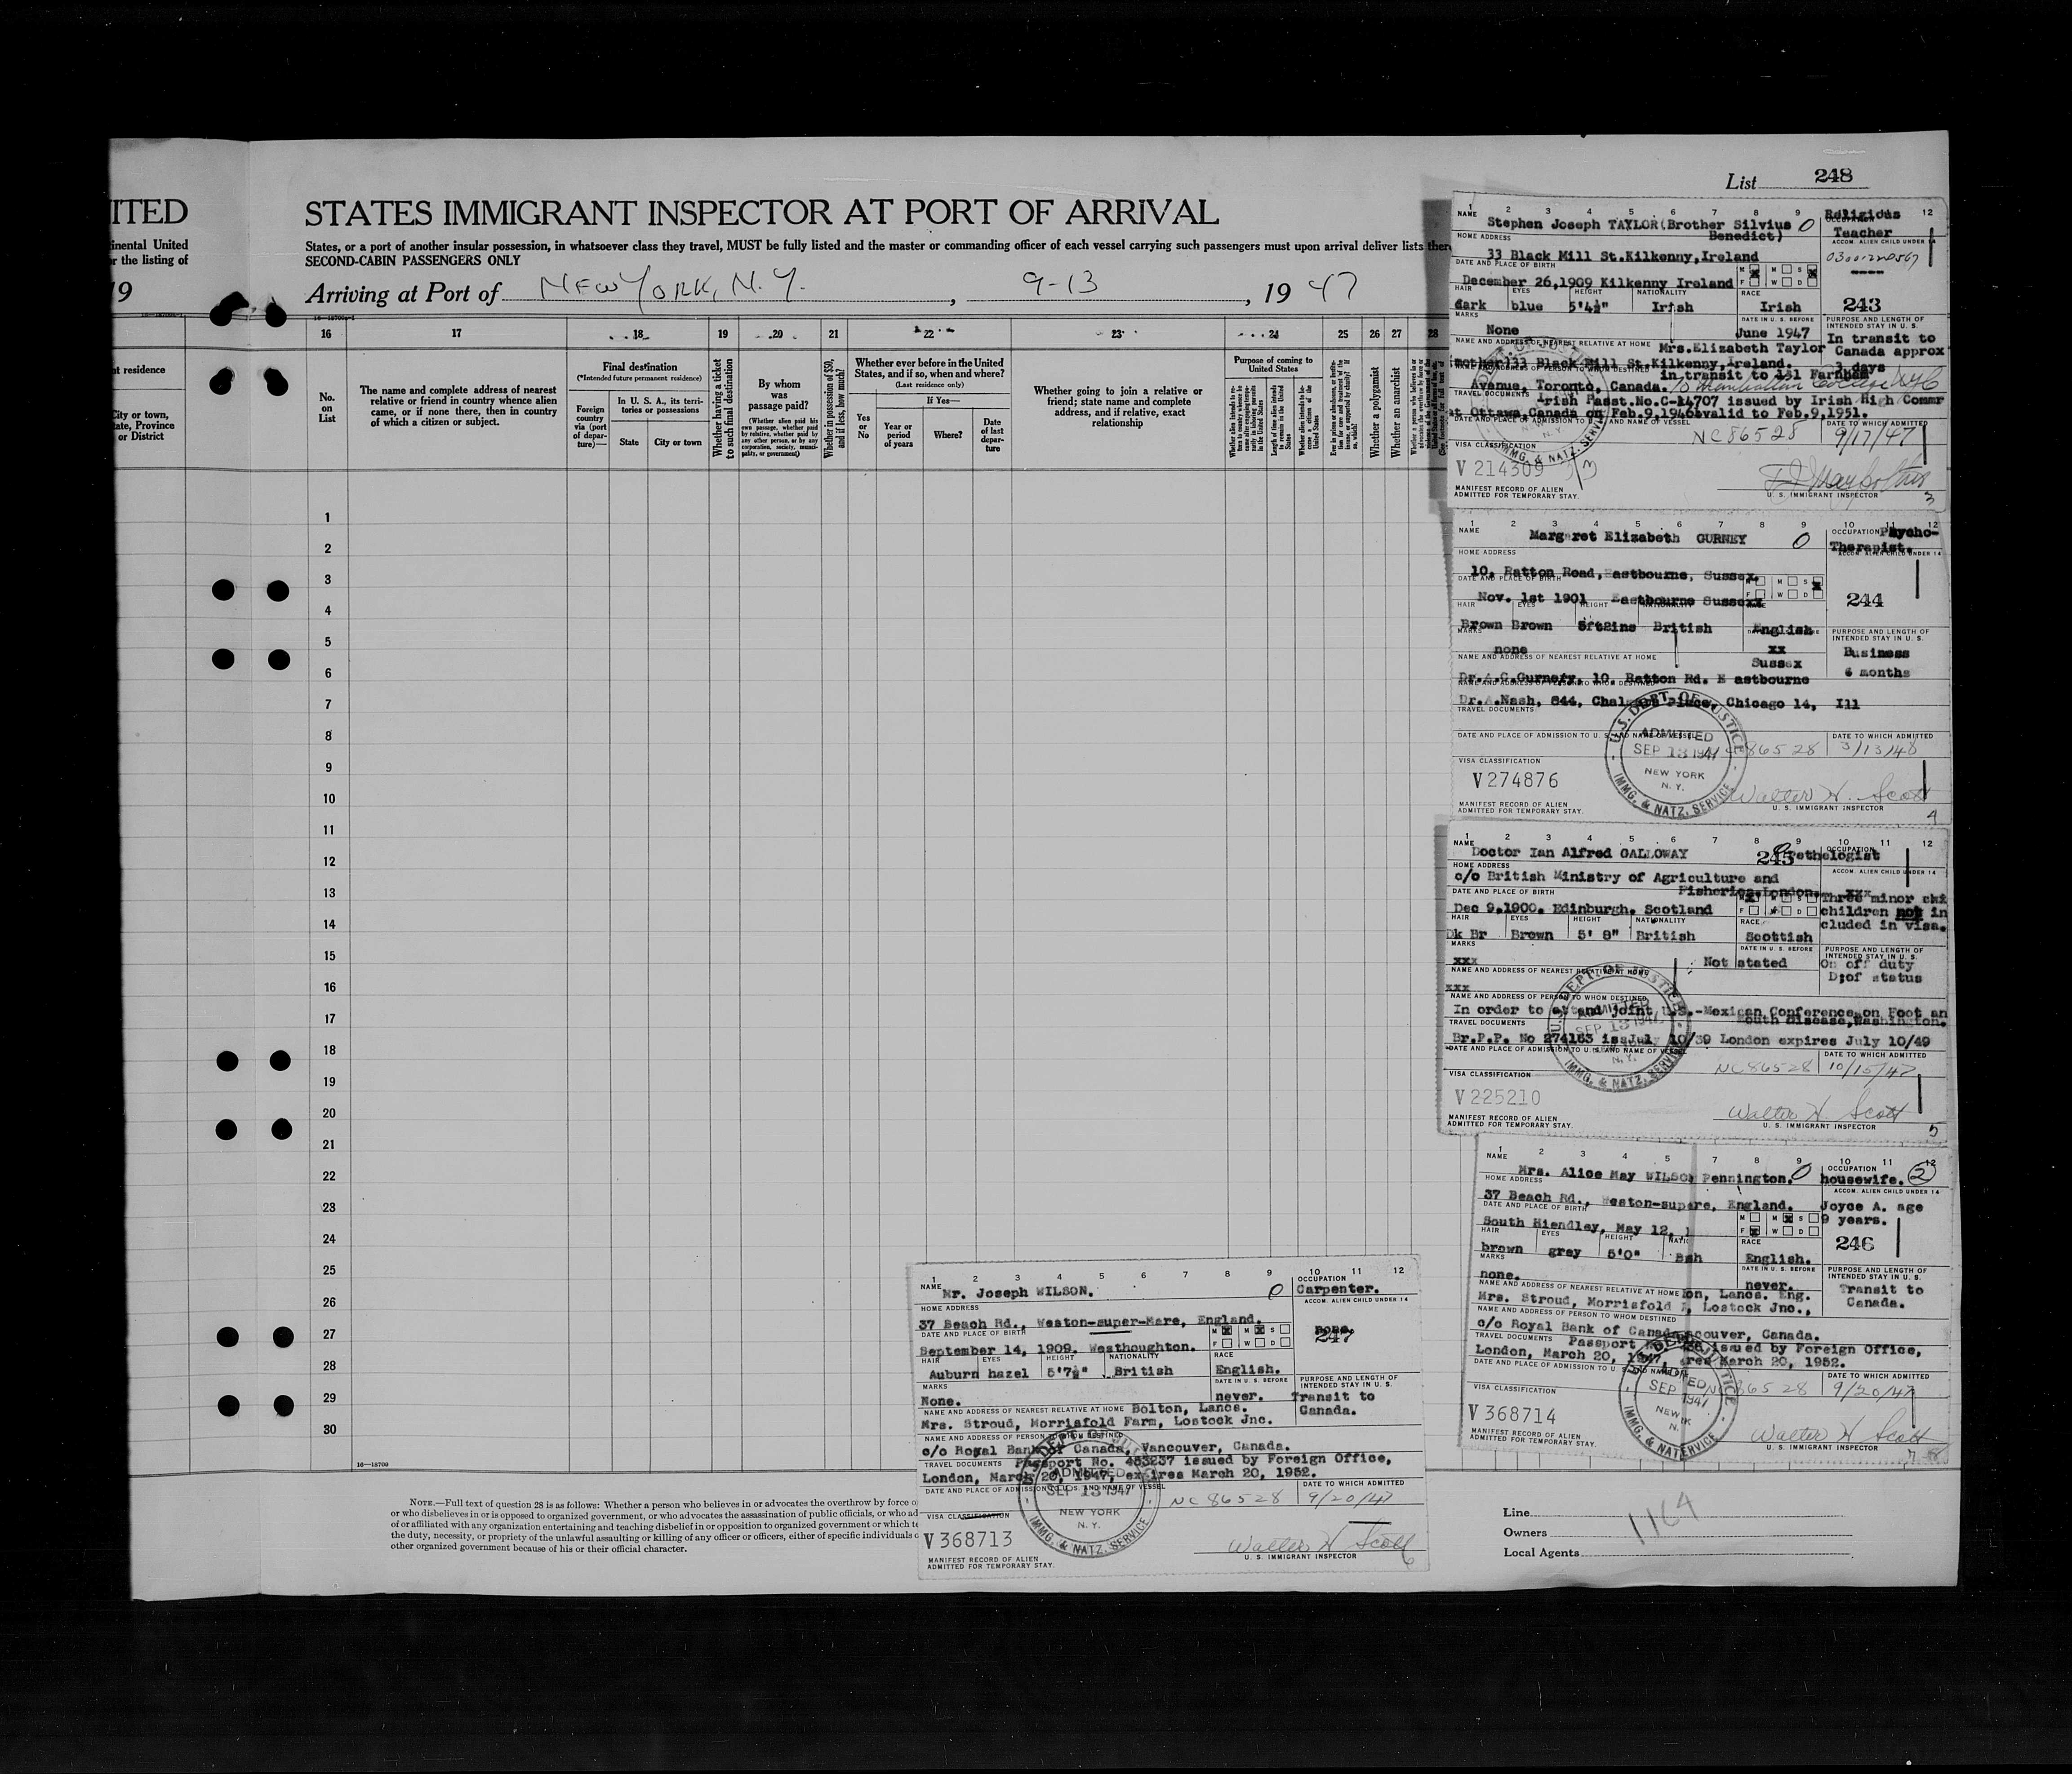 List 248
ITED
STATES IMMIGRANT INSPECTOR AT PORT OF ARRIVAL
inental United
r the listing of
States, or a port of another insular possession, in whatsoever class they travel, MUST be fully listed and the master or commanding officer of each vessel carrying such passengers must upon arrival deliver lists
SECOND-CABIN PASSENGERS ONLY
19
Arriving at Port of NEW YORK, N.Y. , 9-13 , 19 47
16 17 18 19 20 21 22 23 24 25 26 27 28
nt residence
City or town,
tate, Province
or District
No.
on
List
The name and complete address of nearest
relative or friend in country whence alien
came, or if none there, then in country
of which a citizen or subject.
Final destination
(*Intended future permanent residence)
Foreign
country
via (port
of depar-
ture)—
In U. S. A., its terri-
tories or possessions
State
City or town
Whether having a ticket
to such final destination
By whom
was
passage paid?
(Whether alien paid his
own passage, whether paid
by relative, whether paid by
any other person, or by any
corporation, society, munici-
pality, or government)
Whether in possession of $50,
and if less, how much?
Whether ever before in the United
States, and if so, when and where?
(Last residence only)
If Yes—
Yes
or
No
Year or
period
of years
Where?
Date
of last
depar-
ture
Whether going to join a relative or
friend; state name and complete
address, and if relative, exact
relationship
Purpose of coming to
United States
Whether a polygamist
Whether an anarchist
1
2
3
4
5
6
7
8
9
10
11
12
13
14
15
16
17
18
19
20
21
22
23
24
25
26
27
28
29
30
16—18700
NOTE.—Full text of question 28 is as follows: Whether a person who believes in or advocates the overthrow by force o
or who disbelieves in or is opposed to organized government, or who advocates the assassination of public officials, or who ad-
of or affiliated with any organization entertaining and teaching disbelief in or opposition to organized government or which te
the duty, necessity, or propriety of the unlawful assaulting or killing of any officer or officers, either of specific individuals o
other organized government because of his or their official character.
1 2 3 4 5 6 7 8 9 12
NAME Stephen Joseph TAYLOR(Brother Silvius 0 Religious
Benedict) Teacher
HOME ADDRESS
ACCOM. ALIEN CHILD UNDER 14
33 Black Mill St.Kilkenny,Ireland
DATE AND PLACE OF BIRTH
December 26,1909 Kilkenny Ireland
243
HAIR EYES HEIGHT NATIONALITY RACE
dark blue 5'4½" Irish Irish
MARKS DATE IN U. S. BEFORE PURPOSE AND LENGTH OF
INTENDED STAY IN U. S.
None June 1947 In transit to
Canada approx
3 days
NAME AND ADDRESS OF NEAREST RELATIVE AT HOME Mrs.Elizabeth Taylor
mother133 Black Mill St.Kilkenny,Ireland.
in transit to 131 Farnham
Avenue, Toronto, Canada.
TRAVEL DOCUMENTS Irish Passt.No.C-14707 issued by Irish High Commr
at Ottawa,Canada on Feb.9,1946 valid to Feb.9,1951.
DATE AND PLACE OF ADMISSION TO U. S. AND NAME OF VESSEL DATE TO WHICH ADMITTED
NC 86528 9/17/47
VISA CLASSIFICATION
V 214309
MANIFEST RECORD OF ALIEN
ADMITTED FOR TEMPORARY STAY.
U. S. IMMIGRANT INSPECTOR
3
1 2 3 4 5 6 7 8 9 10 11 12
NAME Margaret Elizabeth GURNEY 0 OCCUPATION Psycho-
Therapist.
HOME ADDRESS ACCOM. ALIEN CHILD UNDER 14
10, Ratton Road, Eastbourne, Sussex.
DATE AND PLACE OF BIRTH
Nov. 1st 1901 Eastbourne Sussex
244
HAIR EYES HEIGHT
Brown Brown 5ft2ins British English
MARKS PURPOSE AND LENGTH OF
INTENDED STAY IN U. S.
none xx Business
6 months
NAME AND ADDRESS OF NEAREST RELATIVE AT HOME Sussex
Dr.A.C.Gurney, 10. Ratton Rd. E astbourne
Dr.A.Nash, 844, Place, Chicago 14, Ill
TRAVEL DOCUMENTS
U.S. DEPT. OF JUSTICE
ADMITTED
SEP 13 1947
NEW YORK
N. Y.
IMMG. & NATZ. SERVICE
DATE AND PLACE OF ADMISSION TO U. S. AND NAME OF VESSEL DATE TO WHICH ADMITTED
86528 3/13/48
VISA CLASSIFICATION
V 274876
Walter H. Scott
MANIFEST RECORD OF ALIEN
ADMITTED FOR TEMPORARY STAY.
U. S. IMMIGRANT INSPECTOR
4
1 2 3 4 5 6 7 8 9 10 11 12
NAME Doctor Ian Alfred GALLOWAY 245 OCCUPATION Pathologist
HOME ADDRESS ACCOM. ALIEN CHILD UNDER 14
c/o British Ministry of Agriculture and
Fisheries.London. xxx
DATE AND PLACE OF BIRTH Three minor chi
Dec 9.1900. Edinburgh. Scotland children not in
cluded in visa.
HAIR EYES HEIGHT NATIONALITY RACE
Dk Br Brown 5' 8" British Scottish
MARKS DATE IN U. S. BEFORE PURPOSE AND LENGTH OF
INTENDED STAY IN U. S.
xxx Not stated On off duty
D;of status
NAME AND ADDRESS OF NEAREST RELATIVE AT HOME
xxx
NAME AND ADDRESS OF PERSON TO WHOM DESTINED
In order to attend joint U.S.-Mexican Conference on Foot an
Mouth Disease,Washington.
TRAVEL DOCUMENTS
Br.P.P. No 274163 iss July 10/39 London expires July 10/49
DATE AND PLACE OF ADMISSION TO U. S. AND NAME OF VESSEL DATE TO WHICH ADMITTED
NC86528 10/15/47
VISA CLASSIFICATION
V 225210
Walter H. Scott
MANIFEST RECORD OF ALIEN
ADMITTED FOR TEMPORARY STAY.
U. S. IMMIGRANT INSPECTOR
5
1 2 3 4 5 7 8 9 10 11 12
NAME Mrs. Alice May WILSON Pennington. 0 OCCUPATION housewife. 2
HOME ADDRESS ACCOM. ALIEN CHILD UNDER 14
37 Beach Rd., Weston-supare, England. Joyce A. age
9 years.
DATE AND PLACE OF BIRTH
South Hiendley, May 12, 1
246
HAIR EYES HEIGHT RACE
brown grey 5'0" Bsh English.
MARKS DATE IN U. S. BEFORE PURPOSE AND LENGTH OF
INTENDED STAY IN U. S.
none. never. Transit to
Canada.
NAME AND ADDRESS OF NEAREST RELATIVE AT HOME on, Lancs. Eng.
Mrs. Stroud, Morrisfold Lostock Jnc.,
NAME AND ADDRESS OF PERSON TO WHOM DESTINED
c/o Royal Bank of Canada couver, Canada.
TRAVEL DOCUMENTS Passport issued by Foreign Office,
London, March 20, 1947, res March 20, 1952.
DATE TO WHICH ADMITTED
86528 9/20/47
VISA CLASSIFICATION
V 368714
Walter H Scott
MANIFEST RECORD OF ALIEN
ADMITTED FOR TEMPORARY STAY.
U. S. IMMIGRANT INSPECTOR
1 2 3 4 5 6 7 8 9 10 11 12
NAME Mr. Joseph WILSON. 0 OCCUPATION Carpenter.
HOME ADDRESS ACCOM. ALIEN CHILD UNDER 14
37 Beach Rd., Weston-super-Mare, England. none.
247
DATE AND PLACE OF BIRTH
September 14, 1909. Westhoughton.
HAIR EYES HEIGHT NATIONALITY RACE
Auburn hazel 5'7½" British English.
MARKS DATE IN U. S. BEFORE PURPOSE AND LENGTH OF
INTENDED STAY IN U. S.
None. never. Transit to
Canada.
NAME AND ADDRESS OF NEAREST RELATIVE AT HOME Bolton, Lancs.
Mrs. Stroud, Morrisfold Farm, Lostock Jnc.
NAME AND ADDRESS OF PERSON TO WHOM DESTINED
c/o Royal Bank of Canada, Vancouver, Canada.
TRAVEL DOCUMENTS Passport No. 453237 issued by Foreign Office,
London, March 20, 1947, expires March 20, 1952.
DATE AND PLACE OF ADMISSION TO U. S. AND NAME OF VESSEL DATE TO WHICH ADMITTED
ADMITTED
SEP 13 1947
NEW YORK
N. Y.
IMMG. & NATZ. SERVICE
NC 86528 9/20/47
VISA CLASSIFICATION
V 368713
Walter H Scott
MANIFEST RECORD OF ALIEN
ADMITTED FOR TEMPORARY STAY.
U. S. IMMIGRANT INSPECTOR
6
Line
Owners
Local Agents
1164